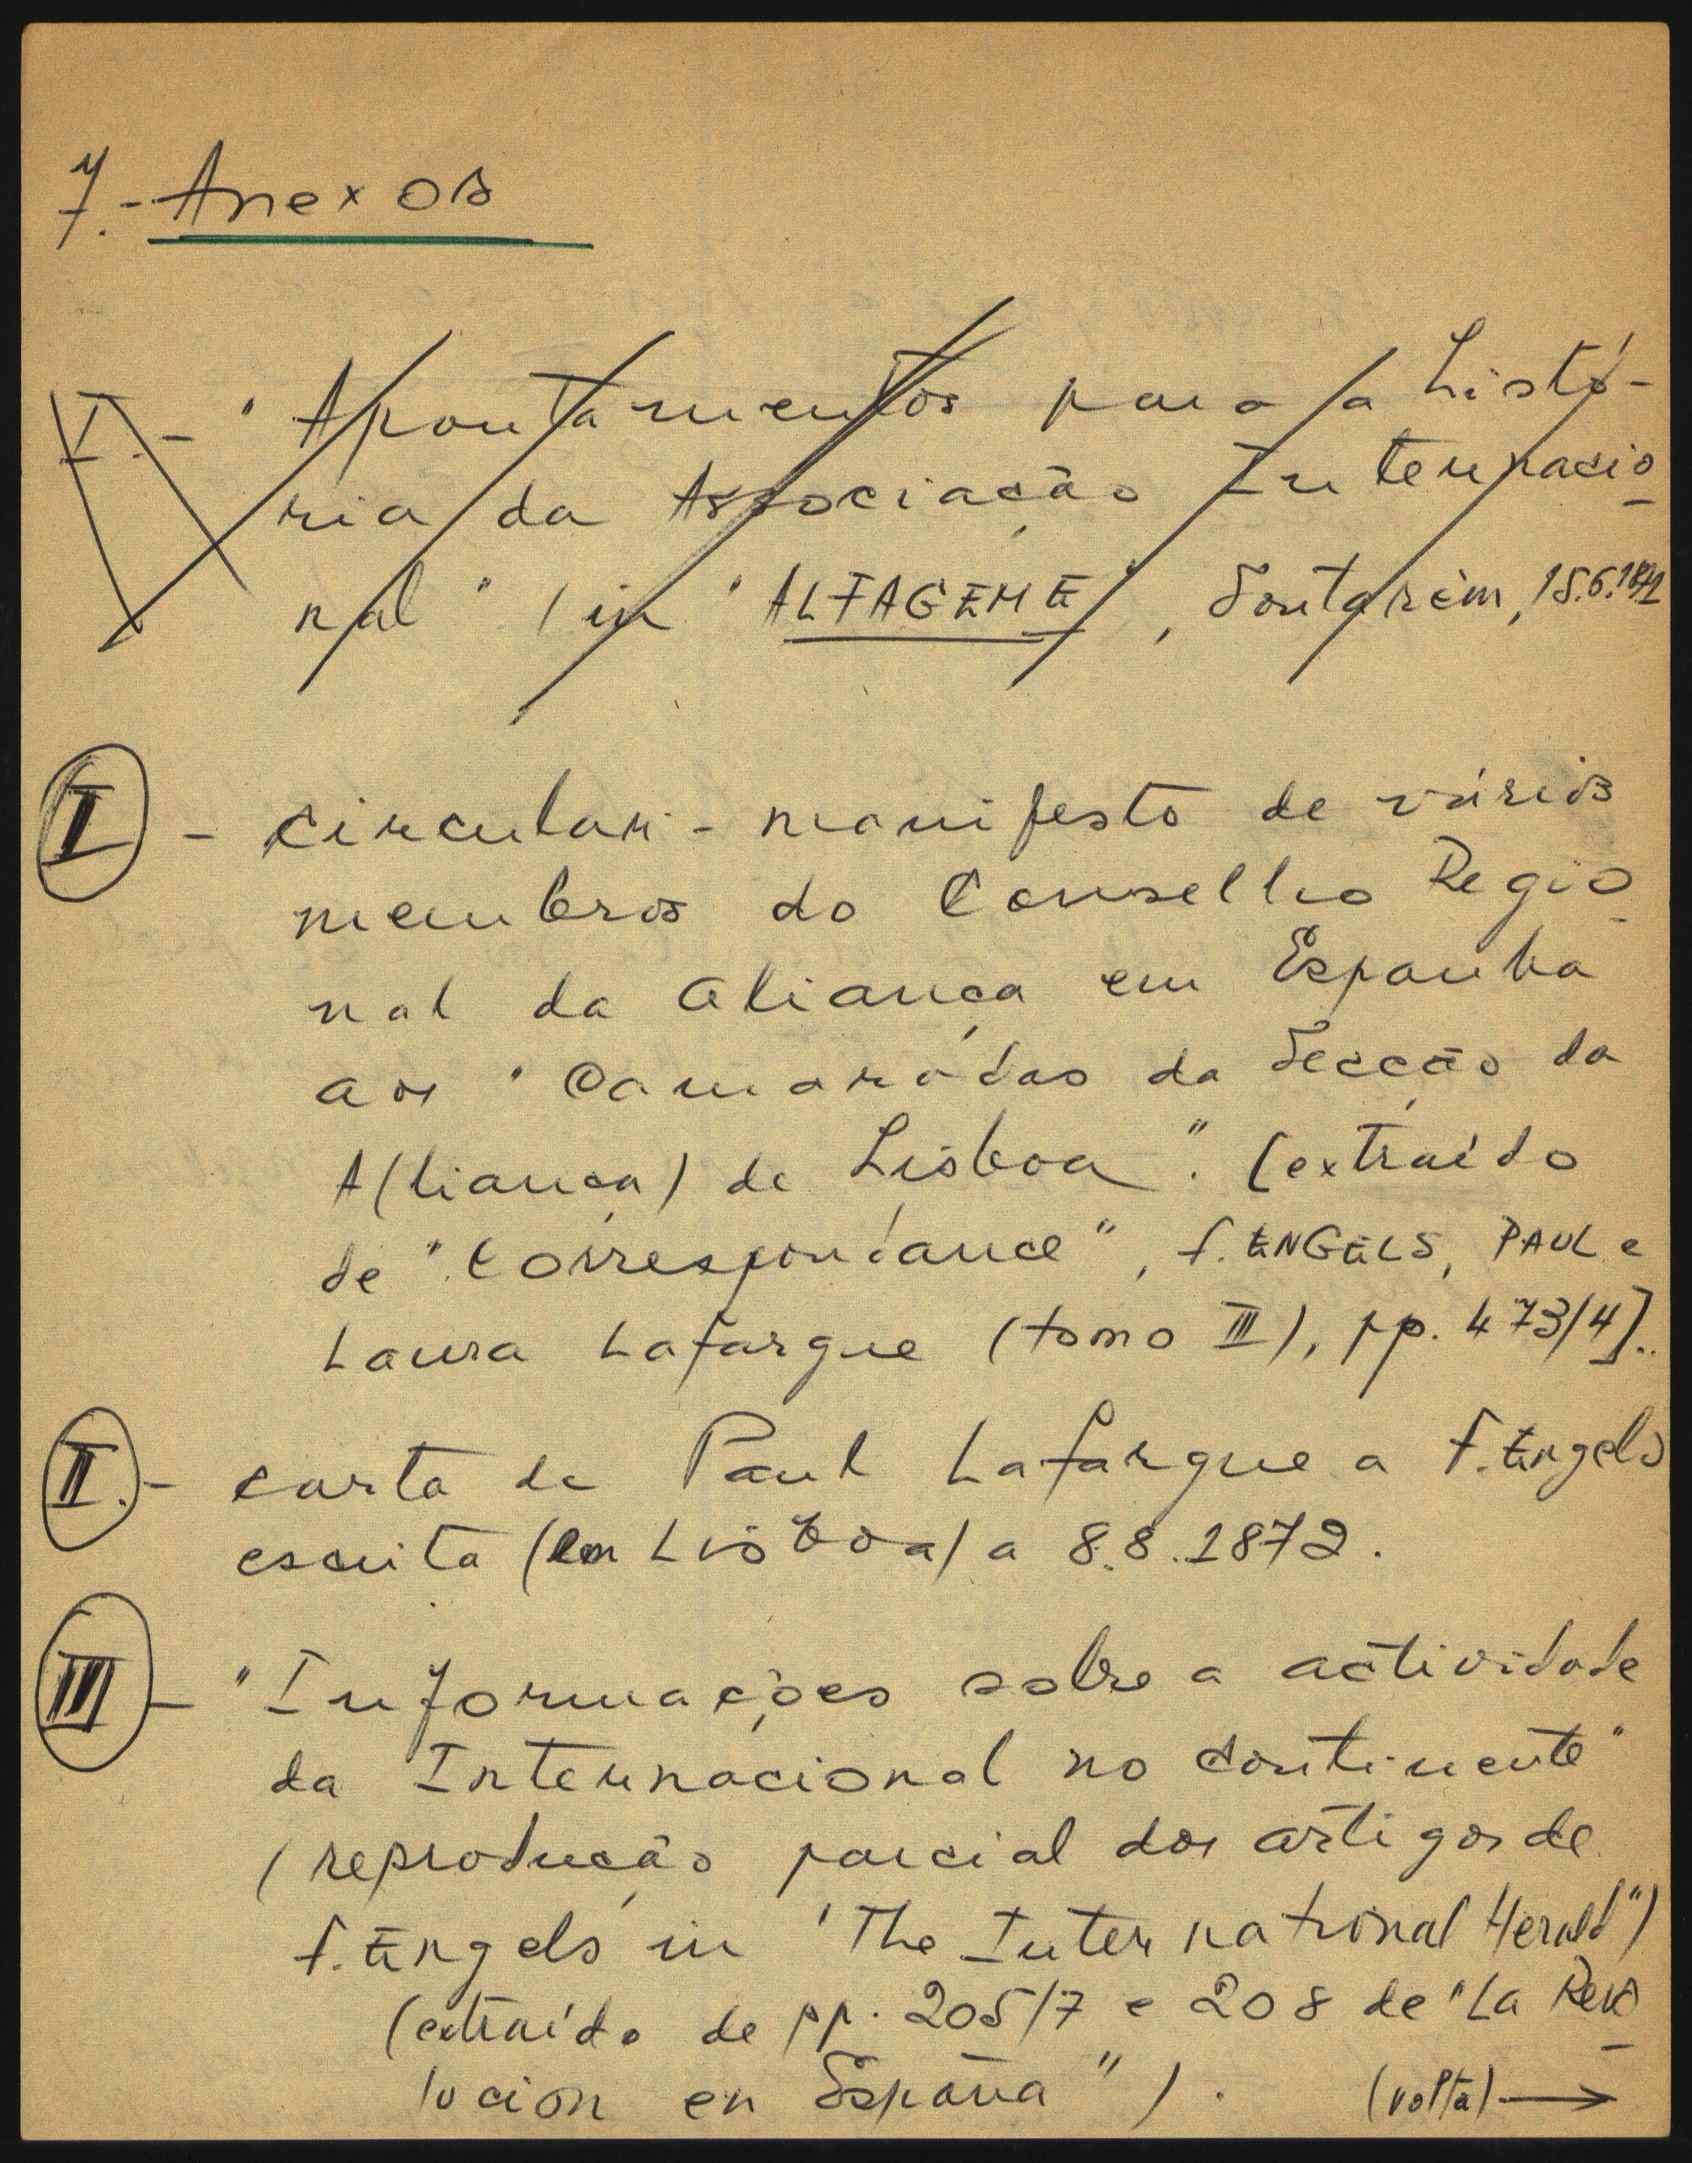 7.- Anexos
I.- "Apontamentos para a Histó-
ria da Associação Internacio-
nal" (in "ALFAGEME", Santarém, 15.6.1871
I - circular-manifesto de vários
membros do Conselho Regio-
nal da Aliança em Espanha
aos "Camaradas da Secção da
A(liança) de Lisboa". [extraído
de "Correspondance", F. ENGELS, PAUL e
Laura Lafargue (tomo III), pp. 473/4].
II.- carta de Paul Lafargue a F. Engels
escrita (em Lisboa) a 8.8.1872.
III - "Informações sobre a actividade
da Internacional no continente"
(reprodução parcial dos artigos de
F. Engels in "The International Herald")
(extraído de pp. 205/7 e 208 de "La Revo-
lucion en España").
(volta) →